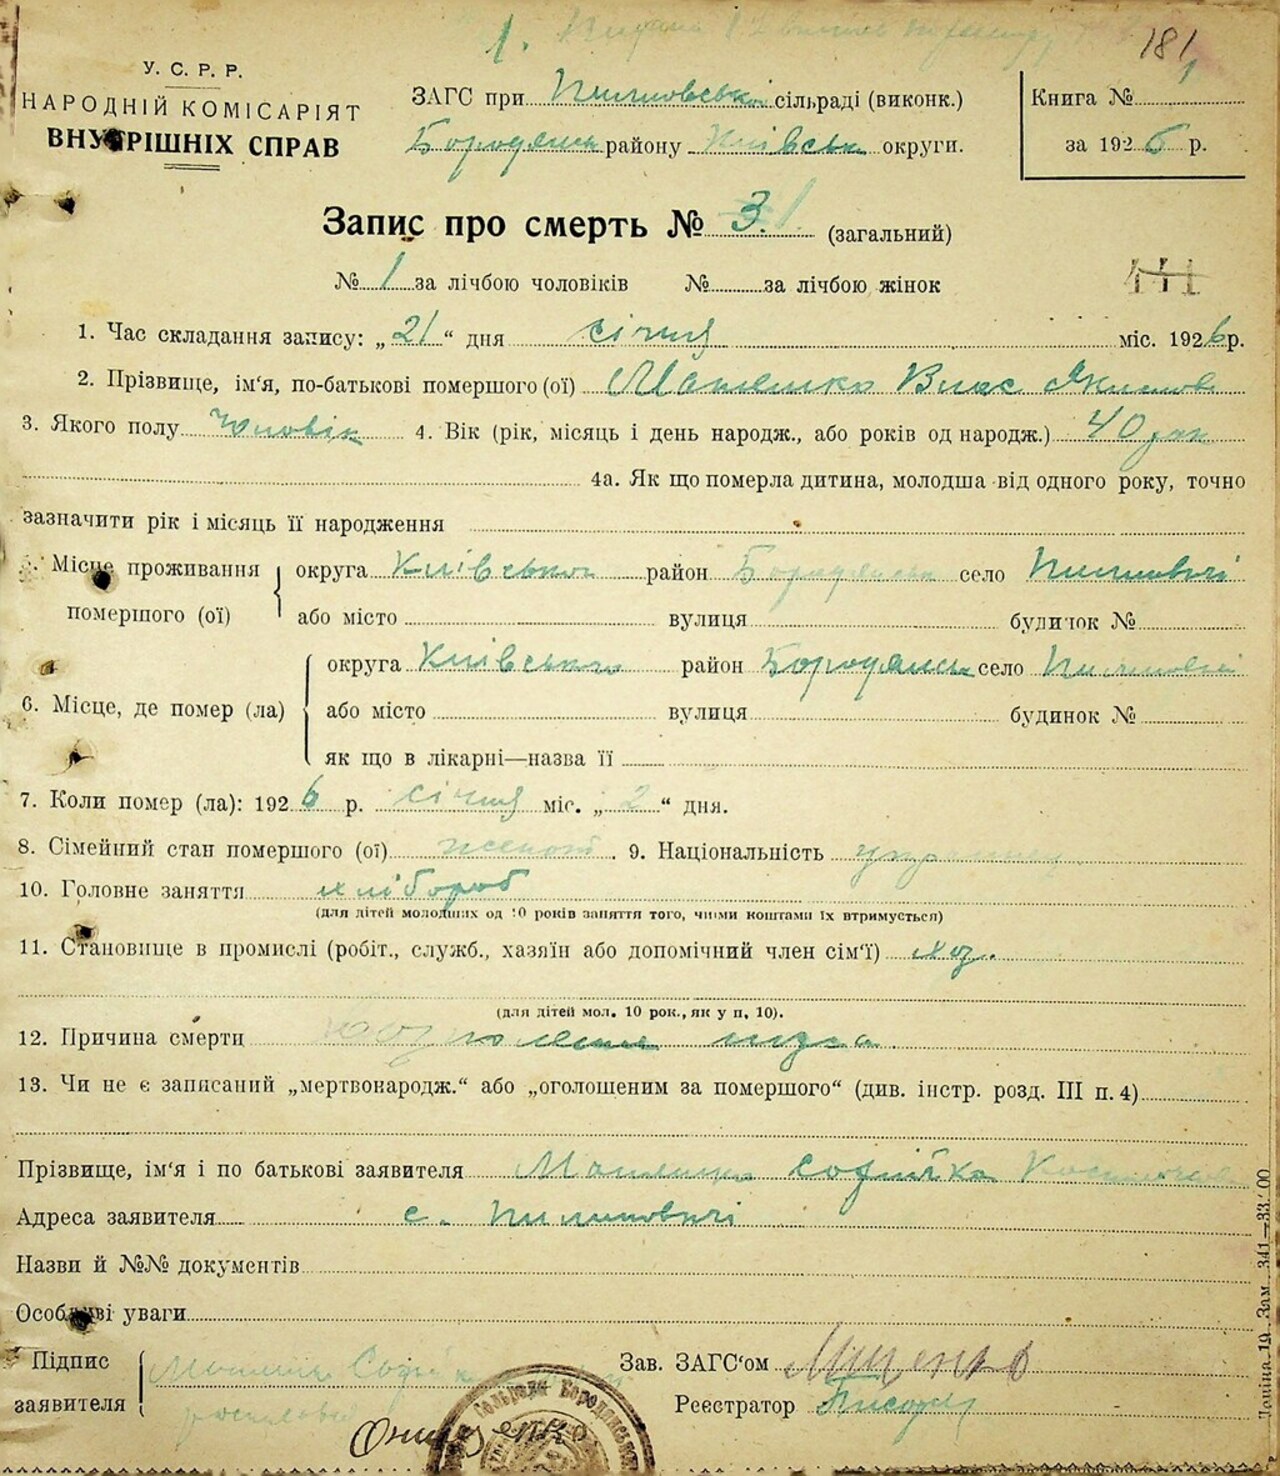 1.
181
У. С. Р. Р.
НАРОДНІЙ КОМІСАРІЯТ
ВНУТРІШНІХ СПРАВ
ЗАГС при сільраді (виконк.)
Бородянськ району Київськ округи.
Книга № 1
за 1926 р.
Запис про смерть № 3.1 (загальний)
№ 1 за лічбою чоловіків № за лічбою жінок
441
1. Час складання запису: „21“ дня січня міс. 1926 р.
2. Прізвище, ім'я, по-батькові помершого (ої) Влас
3. Якого полу Чоловік 4. Вік (рік, місяць і день народж., або років од народж.) 40
4а. Як що померла дитина, молодша від одного року, точно
зазначити рік і місяць її народження
5. Місце проживання помершого (ої) округа Київської район Бородянськ село Пилиповичі
або місто вулиця будинок №
6. Місце, де помер (ла) округа Київської район Бородянськ село Пилиповичі
або місто вулиця будинок №
як що в лікарні—назва її
7. Коли помер (ла): 1926 р. січня міс. „2“ дня.
8. Сімейний стан помершого (ої) 9. Національність українец
10. Головне заняття хлібороб
(для дітей молодших од 10 років заняття того, чиїми коштами їх втримується)
11. Становище в промислі (робіт., служб., хазяїн або допомічний член сім'ї) хоз.
(для дітей мол. 10 рок., як у п. 10).
12. Причина смерти
13. Чи не є записаний „мертвонародж.“ або „оголошеним за помершого“ (див. інстр. розд. III п. 4)
Прізвище, ім'я і по батькові заявителя Софійка
Адреса заявителя с. Пилиповичі
Назви й №№ документів
Особливі уваги
Підпис заявителя
Зав. ЗАГС'ом Іщенко
Реєстратор